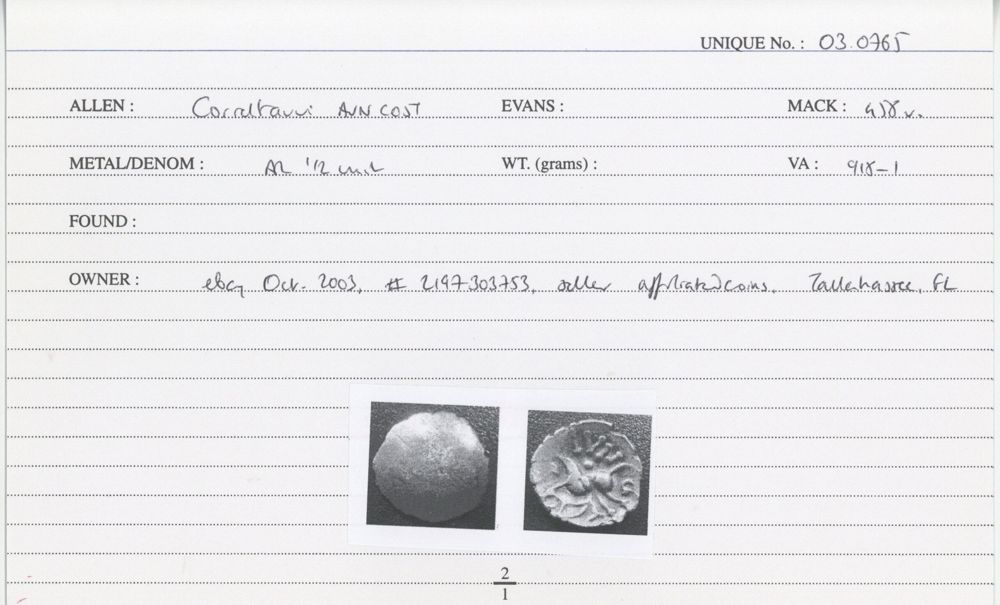 UNIQUE No. : 03.0765
ALLEN : Corieltauvi AVN COST EVANS : MACK : 458 v.
METAL/DENOM : AR 1/2 unit WT. (grams) : VA : 918-1
FOUND :
OWNER : ebay Oct. 2003, # 2197303753, seller affiliatedcoins, Tallahassee, FL
2
1